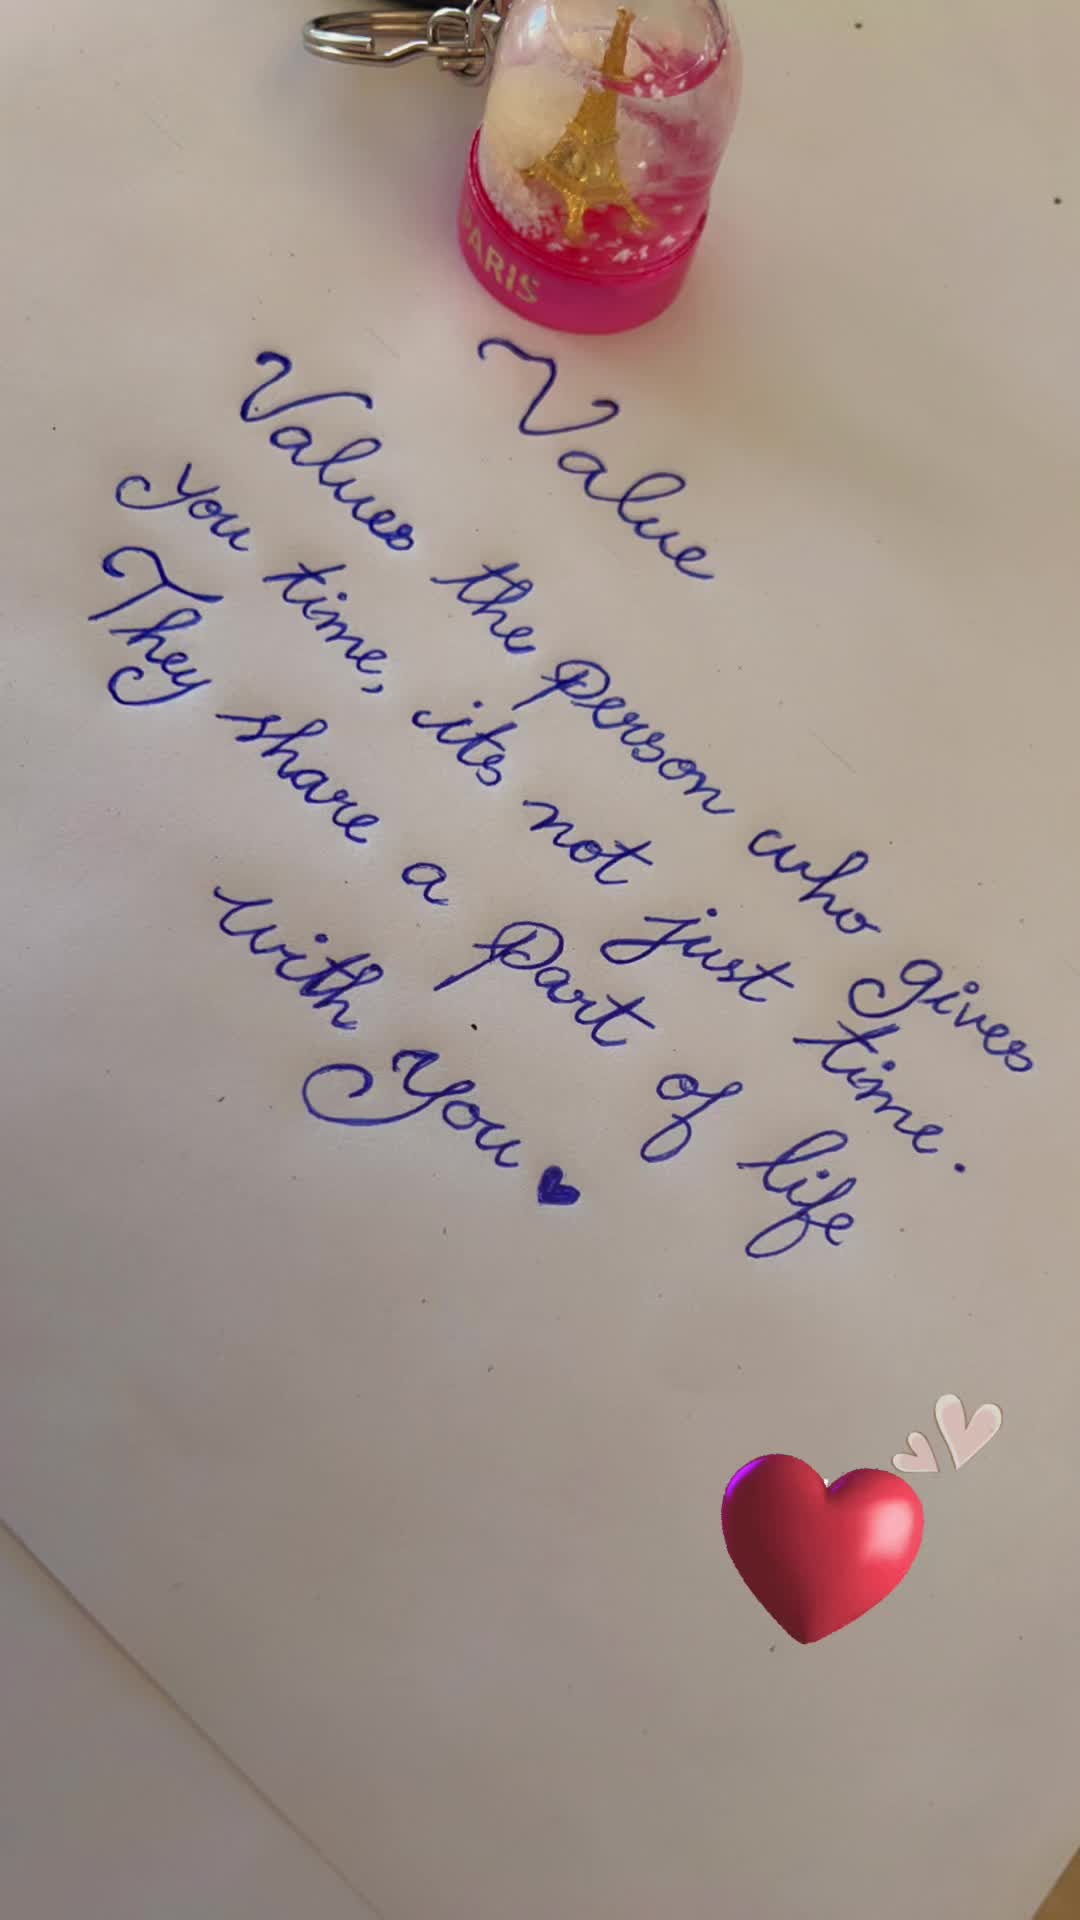 PARIS
Value
Values the person who gives
you time, its not just time.
They share a part of life
with you